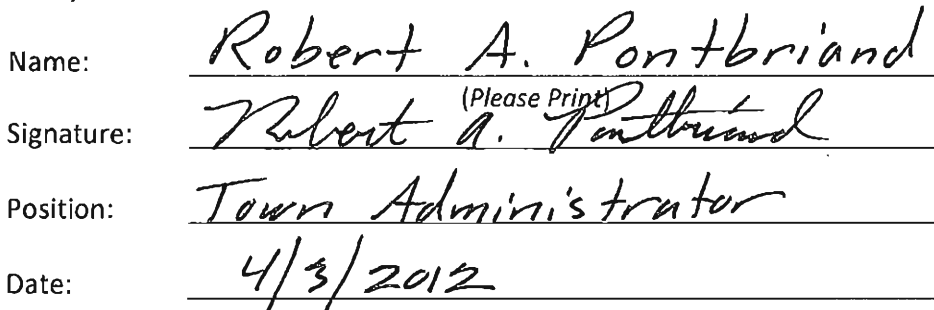 Name: Robert A. Pontbriand
(Please Print)
Signature: Robert A. Pontbriand
Position: Town Administrator
Date: 4/3/2012